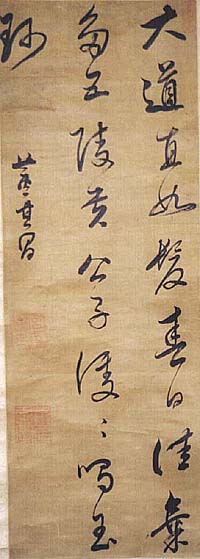 大道直如髮春日佳氣
多五陵貴公子雙〻鳴玉
珂
董其昌